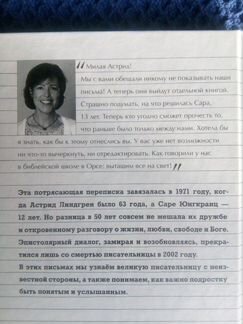 “Милая Астрид!
Мы с вами обещали никому не показывать наши
письма! А теперь они выйдут отдельной книгой.
Страшно подумать, на что решилась Сара,
13 лет. Теперь кто угодно сможет прочесть то,
что раньше было только между нами. Хотела бы
я знать, как бы к этому отнеслись вы. У вас уже нет возможности
ни что-то вычеркнуть, ни отредактировать. Как говорили у нас
в библейской школе в Орсе: вытащим все на свет!”
Эта потрясающая переписка завязалась в 1971 году, ког-
да Астрид Линдгрен было 63 года, а Саре Юнгкранц —
12 лет. Но разница в 50 лет совсем не мешала их дружбе
и откровенному разговору о жизни, любви, свободе и Боге.
Эпистолярный диалог, замирая и возобновляясь, прекра-
тился лишь со смертью писательницы в 2002 году.
В этих письмах мы узнаём великую писательницу с неиз-
вестной стороны, а также понимаем, как важно подростку
быть понятым и услышанным.